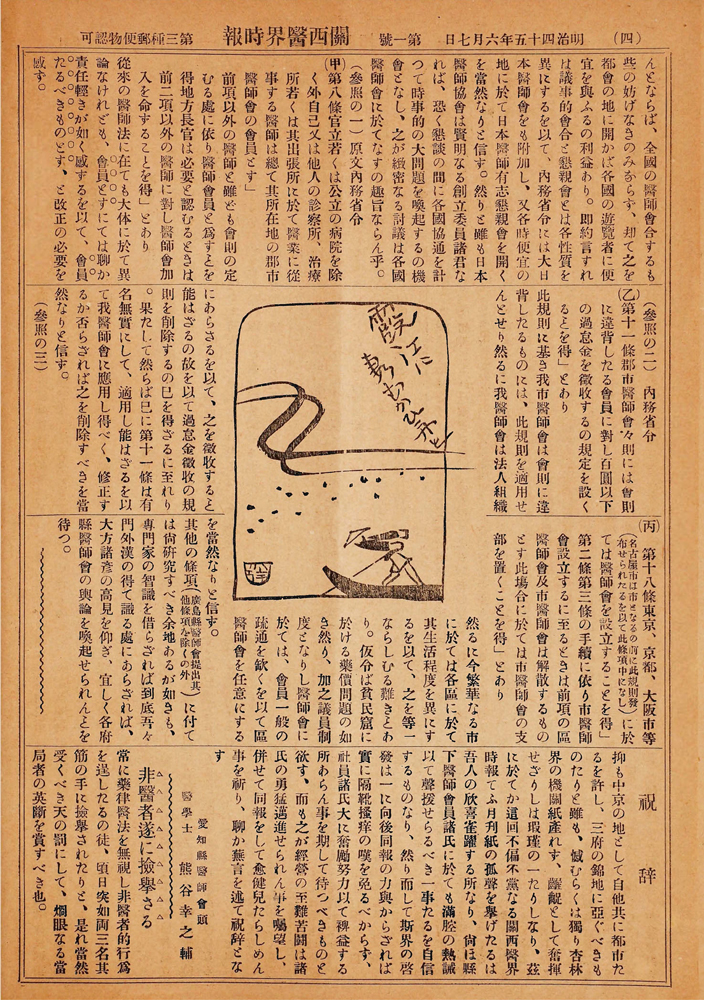 (四)　明治四十五年六月七日　第一號　關西醫界時報　第三種郵便物認可
んとならば、全國の醫師會合するも
些の妨げなきのみならず、却て之を
都會の地に開かば各國の遊覽者に便
宜を與ふるの利益あり。即約言すれ
ば議事的會合と懇親會とは各性質を
異にするを以て、內務省令には大日
本醫師會をも附加し、又各時便宜の
地に於て日本醫師有志懇親會を開く
を當然なりと信す。然りと雖も日本
醫師協會は賢明なる創立委員諸君な
れば、恐く懇談の間に各國協通を計
つて時事的の大問題を喚起するの機
會となし、之が緻密なる討議は各國
醫師會に於てなすの趣旨ならん乎。
(參照の一) 原文內務省令
(甲)第八條官立若くは公立の病院を除
く外自己又は他人の診察所、治療
所若くは其出張所に於て醫業に從
事する醫師は總て其所在地の郡市
醫師會の會員とす」
前項以外の醫師と雖ども會則の定
むる處に依り醫師會員と爲すとを
得地方長官は必要と認むるときは
前二項以外の醫師に對し醫師會加
入を命することを得」とあり
從來の醫師法に在ても大体に於て異
論なけれども、會員とすにては聊か
責任輕きが如く感するを以て、會員
たるべきものとす、と改正の必要を
感す。
(參照の二) 內務省分
(乙)第十一條郡市醫師會々則には會則
に違背したる會員に對し百圓以下
の過怠金を徵收するの規定を設く
ることを得」とあり
此規則に基き我市醫師會は會則に違
背したるものには、此規則を適用せ
んとせり然るに我醫師會は法人組織
にあらさるを以て、之を徵收すると
能はさるの故を以て過怠金徵收の規
則を削除するの已を得ざるに至れり
。果たして然らば已に第十一條は有
名無實にして、適用し能はざるを以
て我醫師會に應用し得べく、修正す
るか否らざれば之を削除すべきを當
然なりと信す。
(參照の三)
(丙)　第十八條東京、京都、大阪市等
(名古屋市は市となるの前に此規則發
布せられたるを以て此條項中になし)に於
ては醫師會を設立することを得」
第二條第三條の手續に依り市醫師
會設立するに至るときは前項の區
醫師會及市醫師會は解散するもの
とす此場合に於ては市醫師會の支
部を置くことを得」とあり
然るに今繁華なる市
に於ては各區に於て
其生活程度を異にす
るを以て、之を等一
ならしむる難きとあ
り。仮令ば貧民窟に
於ける藥價問題の如
き然り、加之議員制
度となりし醫師會に
於ては、會員一般の
疏通を欹くを以て區
醫師會を任意にする
を當然なりと信す。
其他の條項(廣島縣醫師會提出其
他條項を除くの外)に付て
は尙硏究すべき余地あるが如きも、
專門家の智識を借らざれば到底吾々
門外漢の得て識る處にあらざれば、
大方諸彥の高見を仰ぎ、宜しく各府
縣醫師會の輿論を喚起せられんとを
待つ。
祝辭
抑も中京の地として自他共に都市た
るを許し、三府の錦地に亞ぐべきも
のたりと雖も、憾むらくは獨り杏林
界の機關紙產れす、儼觀として奮揮
せざりしは瑕瑾の一たりしなり、茲
に於てか這回不偏不黨なる關西醫界
時報てふ月刊紙の孤聲を擧げたるは
吾人の欣喜雀躍する所なり、尙ほ縣
下醫師會員諸氏に於ても滿腔の熱誠
以て聲援せらるべき一事たるを自信
するものなり、然り而して斯界の啓
發は一に向後同報の力與からざれば
實に隔靴搔痒の嘆を免るべからす、
社員諸氏大に奮勵努力以て裨益する
所あらん事を期して待つべきものと
欲す、而も之が經營の至難苦鬪は諸
氏の勇猛邁進せられん事を囑望し、
併せて同報をして愈健兒たらしめん
事を祈り、聊か蕪言を述て祝辭とな
す
愛知縣醫師會頭
醫學士　熊谷幸之輔
非醫者遂に撿擧さる
常に藥律醫法を無視し非醫者的行爲
を逞したるの徒、頃日突如兩三名其
筋の手に撿擧されたりと、是れ當然
受くべき天の罰にして、烱眼なる當
局者の英斷を賞すべき也。